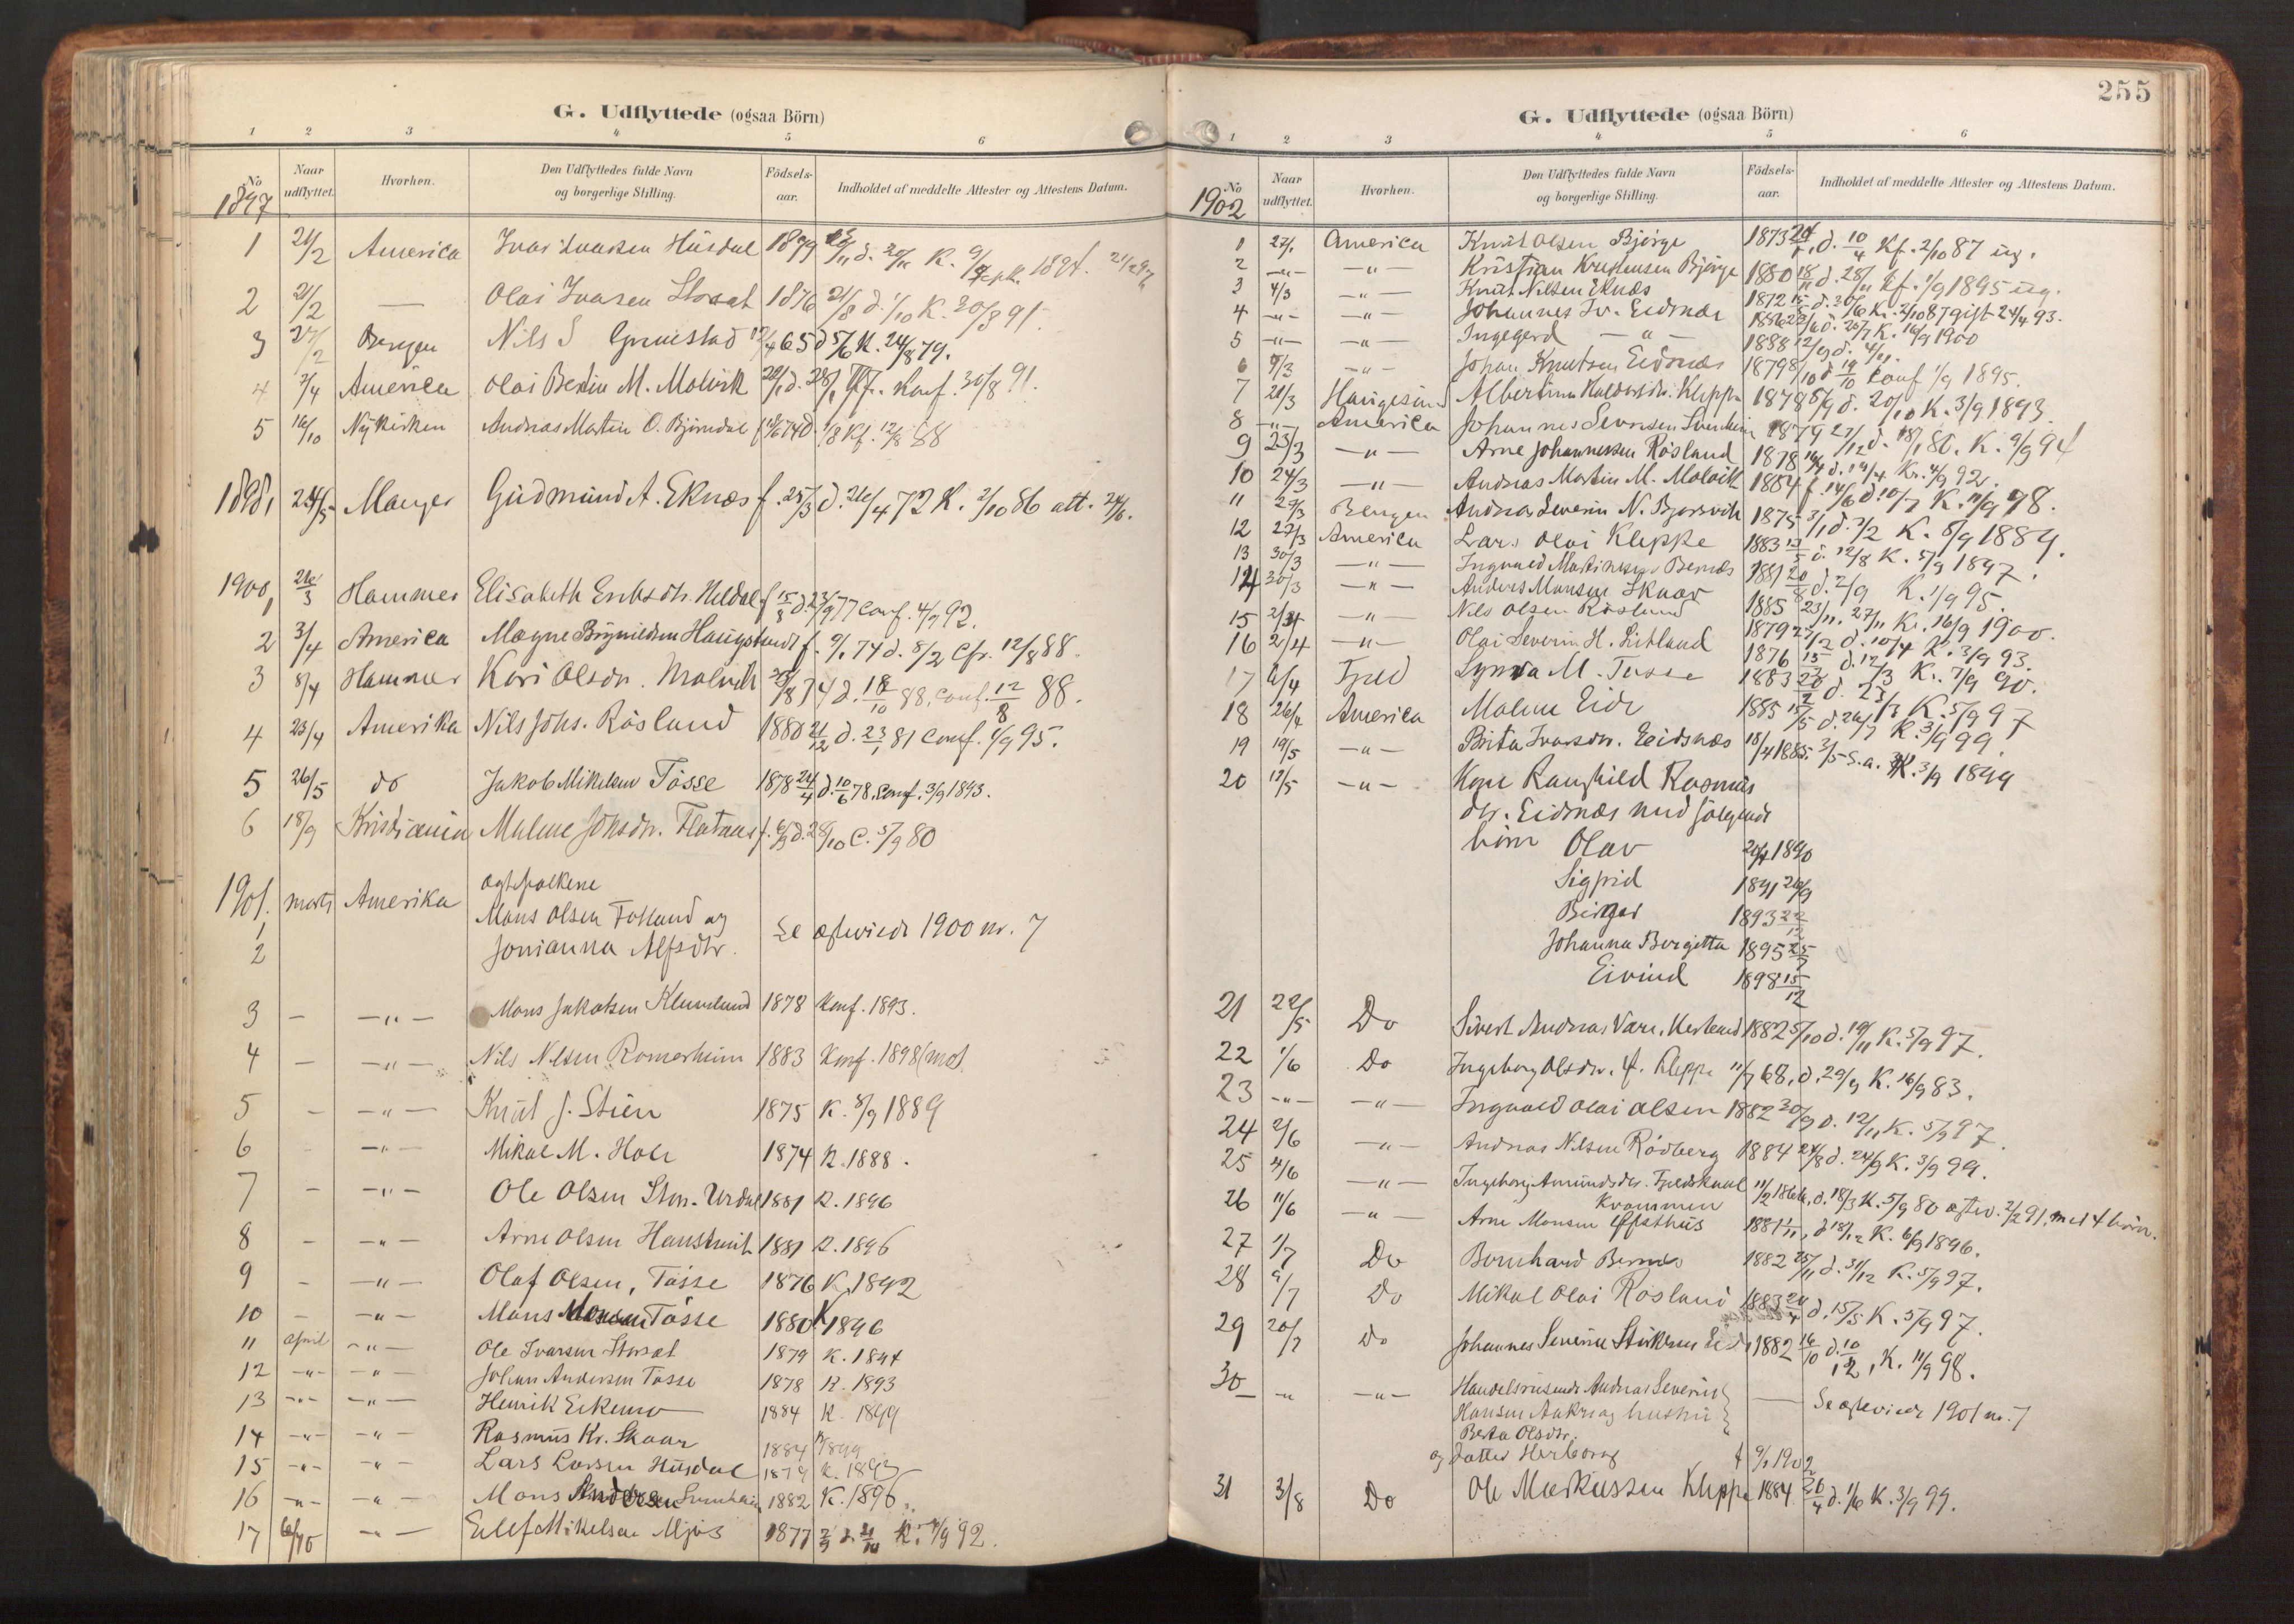 G. Udflyttede (ogsaa Börn)
1 2 3 4 5 6
No Naar udflyttet. Hvorhen. Den Udflyttedes fulde Navn og borgerlige Stilling. Födsels-aar. Indholdet af meddelte Attester og Attestens Datum.
1897
1 21/2 America Ivar Ivarsen Húsdal 1879
2 21/2 — Olai Ivarsen Storsæt 1876 21/8 d. 1/10 K. 30/8 91.
3 27/2 Bergen Nils S Grimestad 12/4 65 d 5/6 K. 24/8 79.
4 2/4 America Olai Bertin M. Molvik Konf. 30/8 91.
5 16/10 Nykirken Andreas Martin O. Björndal 1/8 Kf. 12/8 88
1898 1 24/5 Manger Gúdmúnd A. Eknæs f. 25/3 d. 26/4 72 K. 2/10 86 att. 24/5.
1900 1 26/3 Hammer Elisabeth Eriksdtr. Heldal f 15/8 d 23/9 77 Conf. 4/9 92.
2 3/4 America Magne Haúgstvedt f. 9/1 74 d. 8/2 Cfr. 12/8 88.
3 8/4 Hammer Kari Olsdr. Molvik d. 18/10 88, conf. 12/8 88.
4 23/4 Amerika Nils Johs. Rösland 1880 21/12 d. 23/1 81 Conf. 1/9 95.
5 26/5 do Jakob Mikelsen Tösse 1878 24/4 d. 10/6 78, Conf. 3/9 1893.
6 18/9 Kristiania Malene Johsdr. C. 5/9 80
1901
Ægtefolkene
1 marts Amerika Mons Olsen Fotland og
2 Jonianna Alfsdtr. Se ægteviede 1900 nr. 7
3 — —"— Mons Jakobsen 1878 Konf. 1893.
4 — —"— Nils Nilsen Romarheim 1883 Konf. 1898
5 - —"— Knút J. Stien 1875 K. 8/9 1889
6 - —"— Mikal M. Hole 1874 K. 1888.
7 - —"— Ole Olsen 1881 K. 1896
8 - —"— Arne Olsen 1881 K. 1896
9 - —"— Olaf Olsen, Tösse 1876 K. 1892
10 - —"— Mons Monsen Tösse 1880 K 1896
11 april —"— Ole Ivarsen Storsæt 1879 K. 1894
12 —"— —"— Johan Andersen Tösse 1878 K. 1893
13 —"— —"— Henrik Eikemo 1884 K. 1899
14 —"— —"— Rasmús Kr. Skaar 1884 K 1899
15 —"— —"— Lars Larsen Húsdal 1879 K. 1893
16 —"— —"— Mons Andersen 1882 K. 1896
17 —"— Elef Mikelsen Mjös 1877 K. 4/9 92.
255
G. Udflyttede (ogsaa Börn)
1 2 3 4 5 6
No Naar udflyttet. Hvorhen. Den Udflyttedes fulde Navn og borgerlige Stilling. Födsels-aar. Indholdet af meddelte Attester og Attestens Datum.
1902
1 27/1 America Knút Olsen Bjørge 1873 d. 10/4 Kf. 2/10 87 úg.
2 —"— —"— Kristian Kristensen Bjørge 1880 18/11 d. 28/11 Kf. 1/9 1895 úg.
3 4/3 —"— Knút Nilsen Eknæs 1872 15/5 d. 30/6 K. 2/10 87 gift 24/4 93.
4 —"— —"— Johannes Iv. Eidsnæs K. 16/9 1900
5 —"— —"— Ingegerd —"— 1888 12/9 d. 4/11
6 7/3 —"— Johan Knutsen Eidsnæs 1879 8/10 d 19/10 Conf 1/9 1895.
7 21/3 Haúgesúnd Albertina Haldorsdtr. Kleppe 1878 5/9 d. 20/10 K. 3/9 1893.
8 —"— America Johannes Sevrinsen 1879 27/12 d. 18/1 80. K. 9/9 94
9 23/3 —"— Arne Johannessen Rösland 1878 16/3 d. 19/4 K. 4/9 92.
10 24/3 —"— Andreas Martin M. Molvik 1884 f. 14/6 d. 10/7 K. 11/9 98.
11 27/3 Bergen Andreas Severin N. Bjorsvik 1875 3/1 d. 7/2 K. 8/9 1889.
12 27/3 America Lars Olai Kleppe 1883 13/5 d. 12/8 K. 5/9 1897.
13 30/3 —"— Ingvald Martinusen Bernæs 1881 20/8 d. 2/9 K. 1/9 95.
14 30/3 —"— Anders Monsen Skaar 1885 23/11. 27/11 K. 16/9 1900.
15 2/4 —"— Nils Olsen Rösland 1879 d. 10/4 K. 3/9 93.
16 2/4 —"— Olai Severin H. Litland 1876 15/2 d. 12/3 K. 7/9 90.
17 6/4 Fjeld M. Tösse 1883 K. 5/9 97
18 26/4 America Malene Eide 1885 15/5 d. 26/7 K. 3/9 99.
19 19/5 —"— Brita Ivarsdr. Eidsnæs 18/4 1885. 3/5 s.a. K. 3/9 1899
20 12/5 —"— Kone Ranghild Rasmús
dtr. Eidsnæs med følgende
börn Olav 20/4 1890
Sigfrid 1891 26/9
Birger 1893 22/12
Johanna Bergitta 1895 25/7
Eivind 1898 15/12
21 22/5 Do Sivert Andreas 1882 5/10 d. 19/11 K. 5/9 97.
22 1/6 Do Ingeborg Olsdr. f. Kleppe 11/7 68. d. 29/9 K. 16/9 83.
23 —"— —"— Ingvald Olai Olsen 1882 30/9 d. 12/11 K. 5/9 97.
24 2/6 —"— Andreas Nilsen Rödberg 1884 24/8 d. 24/9 K. 3/9 99.
25 4/6 —"— Ingeborg Amúndsdr. Fjeldskaal 11/2 1866, d. 18/3 K. 5/9 80 ægtev. 2/2 91, med 4 börn.
Kvammen
26 11/6 —"— Arne Monsen Øfsthús 1881 1/11, d 18/12 K. 6/9 1896.
27 1/7 Do Bernhard Bernæs 1882 25/11 d. 31/12 K. 5/9 97.
28 9/7 Do Mikal Olai Rösland 1883 20/4 d. 15/5 K. 5/9 97.
29 20/7 Do Johannes Severin Eide 1882 16/10 d. 10/12, K. 11/9 98.
30 —"— —"— Handelsreisende Andreas Severin
Hansen Aakre og hústrú — Se ægteviede 1901 nr. 7
Berta Olsdtr.
og datter Herborg f 9/1 1902
31 3/8 Do Ole Markussen Kleppe 1884 26/4 d. 1/6 K. 3/9 99.